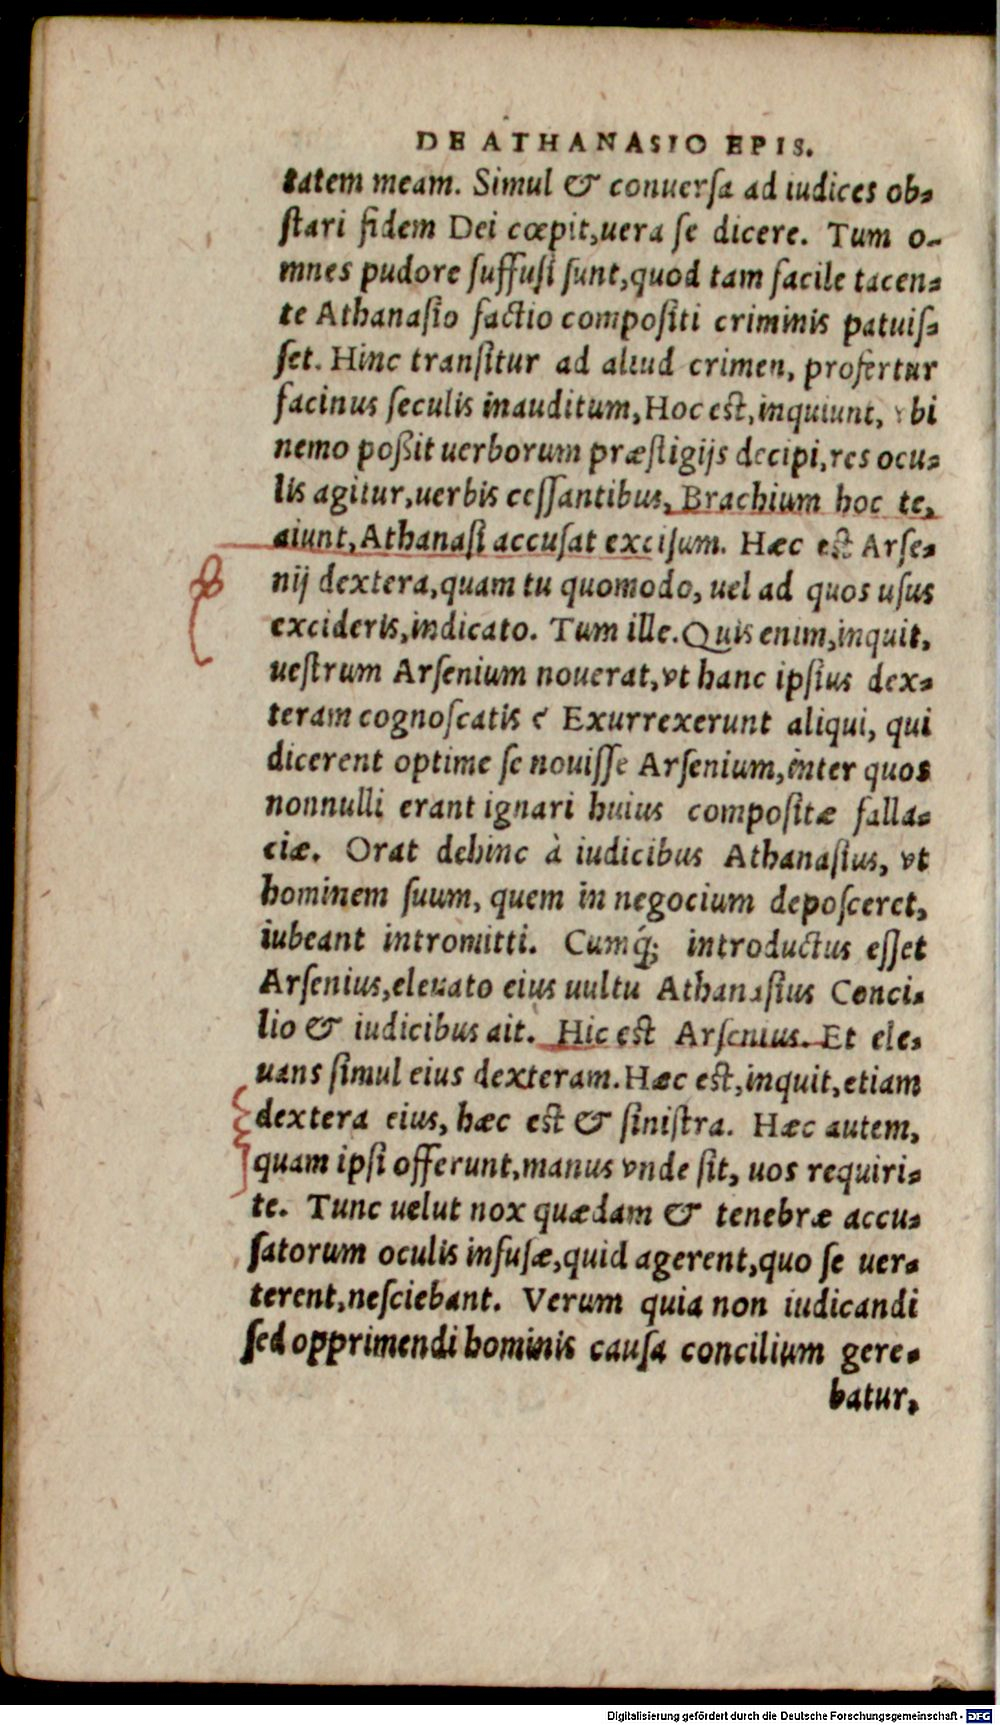 DE ATHANASIO EPIS.
tatem meam. Simul & conuerſa ad iudices ob-
ſtari fidem Dei cœpit, uera ſe dicere. Tum o-
mnes pudore ſuffuſi ſunt, quod tam facile tacen-
te Athanaſio factio compoſiti criminis patuiſ-
ſet. Hinc tranſitur ad aliud crimen, profertur
facinus ſeculis inauditum, Hoc eſt, inquiunt, vbi
nemo poßit uerborum præſtigijs decipi, res ocu-
lis agitur, uerbis ceſſantibus, Brachium hoc te,
aiunt, Athanaſi accuſat exciſum. Hæc eſt Arſe-
nij dextera, quam tu quomodo, uel ad quos uſus
excideris, indicato. Tum ille. Quis enim, inquit,
ueſtrum Arſenium nouerat, vt hanc ipſius dex-
teram cognoſcatis? Exurrexerunt aliqui, qui
dicerent optime ſe nouiſſe Arſenium, inter quos
nonnulli erant ignari huius compoſitæ falla-
ciæ. Orat dehinc à iudicibus Athanaſius, vt
hominem ſuum, quem in negocium depoſceret,
iubeant intromitti. Cumq́; introductus eſſet
Arſenius, eleuato eius uultu Athanaſius Conci-
lio & iudicibus ait. Hic eſt Arſenius. Et ele-
uans ſimul eius dexteram. Hæc eſt, inquit, etiam
dextera eius, hæc eſt & ſiniſtra. Hæc autem,
quam ipſi offerunt, manus vnde ſit, uos requiri-
te. Tunc uelut nox quædam & tenebræ accu-
ſatorum oculis infuſæ, quid agerent, quo ſe uer-
terent, neſciebant. Verum quia non iudicandi
ſed opprimendi hominis cauſa concilium gere-
batur,
Digitalisierung gefördert durch die Deutsche Forschungsgemeinschaft - DFG